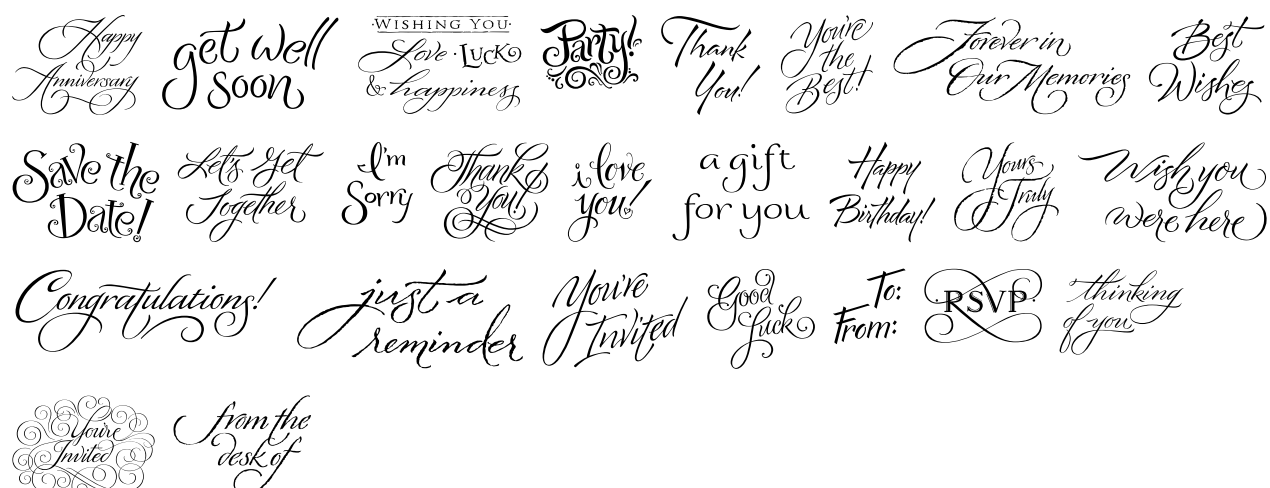 Happy
Anniversary
get well
soon
Wishing You
Love · Luck
& happiness
Party!
Thank
You!
You're
the
Best!
Forever in
Our Memories
Best
Wishes
Save the
Date!
Let's Get
Together
I'm
Sorry
Thank
You!
i love
you!
a gift
for you
Happy
Birthday!
Yours
Truly
Wish you
were here
Congratulations!
just a
reminder
You're
Invited
Good
Luck
To:
From:
·RSVP·
thinking
of you
You're
Invited
from the
desk of